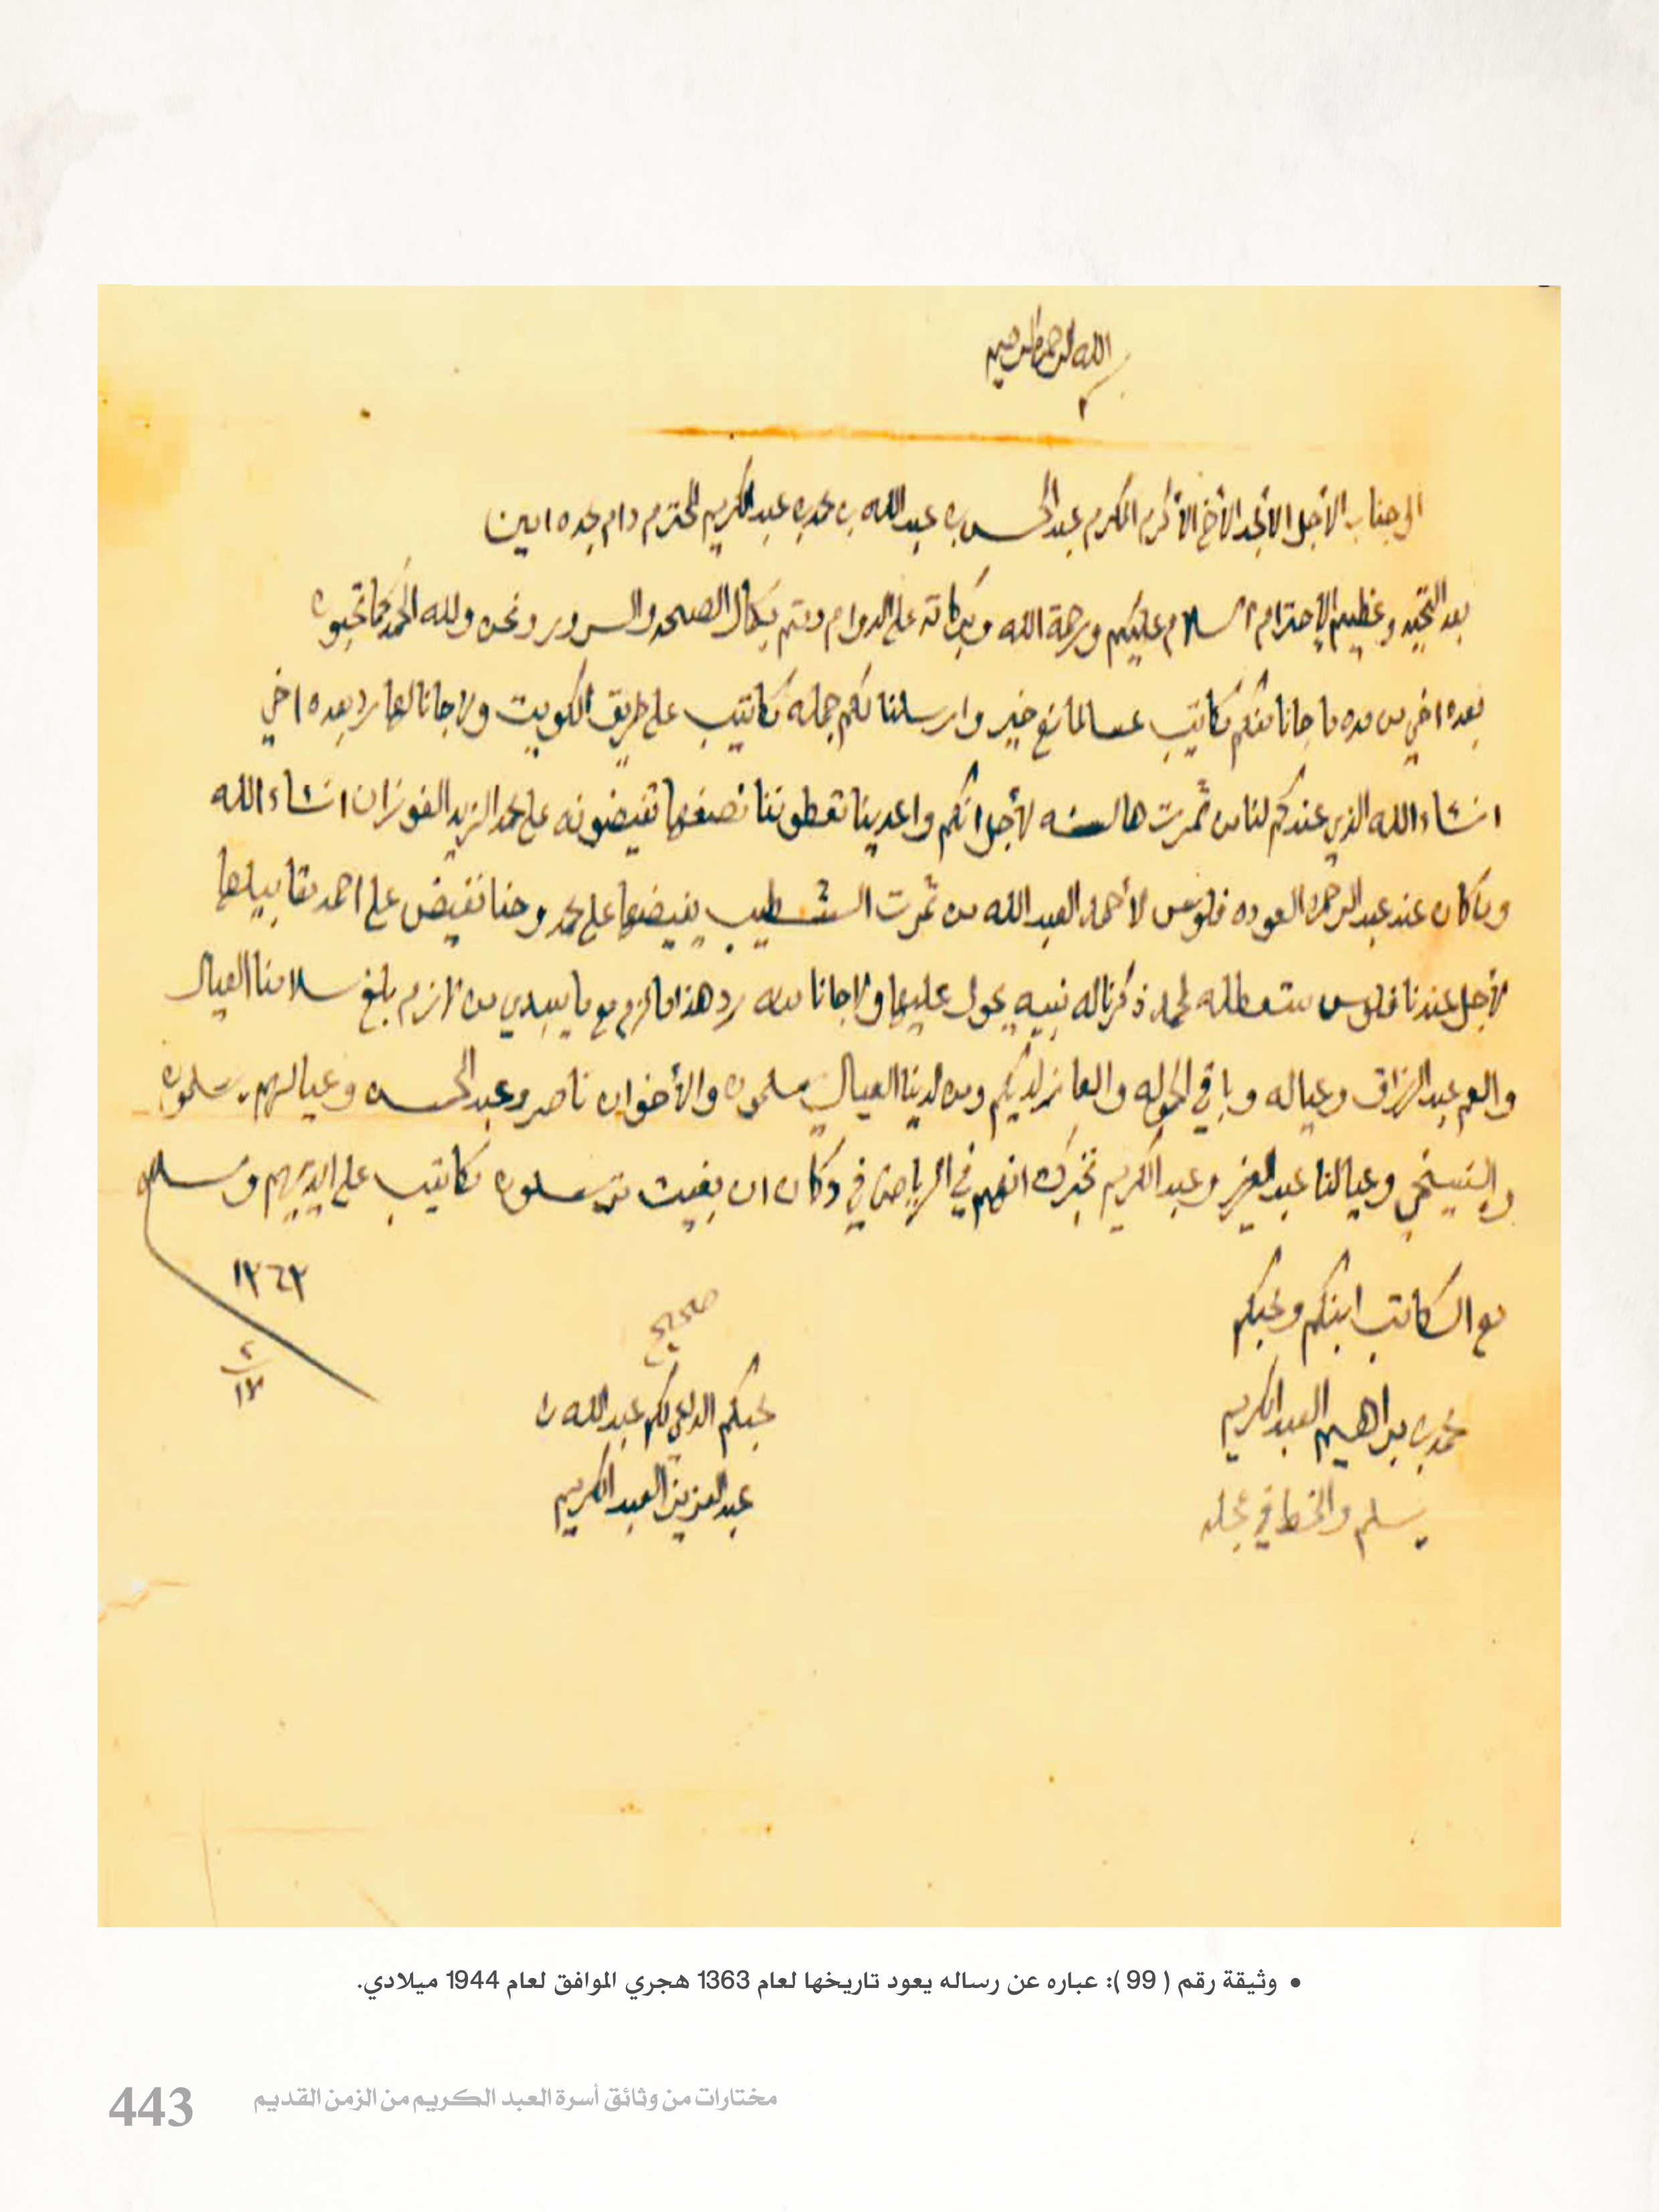 بسم الله الرحمن الرحيم
الى جناب الأجل الأمجد الأخ الأكرم المكرم عبدالمحسن بن عبدالله بن محمد بن عبدالكريم المحترم دام مجده امين
بعد التحيه وعظيم الإحترام السلام عليكم ورحمة الله وبركاته على الدوام ودمتم بكمال الصحه والسرور ونحن ولله الحمد كما تحبون
بعده اخي من مده ما جانا منكم مكاتيب عسا لمانع خير وارسلنا لكم جمله مكاتيب على طريق الكويت ولا جانا لها رد بعده اخي
انشاء الله الذي عندكم لنا من ثمرت هالسنه لأجل انكم واعدينا تعطوننا نصفها تفيضونه على محمد الزيد الفوزان انشاء الله
وما كان عند عبدالرحمن العوده فلوس لأحمد العبدالله من ثمرت الشطيب يفيضها على محمد وحنا نفيض على احمد مقابيلها
لأجل عندنا فلوس لمحمد ذكرنا له نبيه يحول عليها ولا جانا منه رد هذا ما لزم مع ما يبدي من لازم بلغ سلامنا العيال
والعم عبدالرزاق وعياله وباقي الحموله والعازيز لديكم ومن لدينا العيال يسلمون والأخوان ناصر وعبدالمحسن وعيالهم يسلمون
وعيالنا عبدالعزيز وعبدالكريم نخبرك انهم في الرياض في دكان ان بغيت ترسلون مكاتيب على ايديهم والسلام
١٣٦٣
٢
١٧
مع الكاتب ابنكم ومحبكم
محمد بن براهيم العبدالكريم
يسلم والخط في عجله
صحيح
محبكم الداعي لكم عبدالله بن
عبدالعزيز العبدالكريم
• وثيقة رقم ( 99 ): عباره عن رساله يعود تاريخها لعام 1363 هجري الموافق لعام 1944 ميلادي.
مختارات من وثائق أسرة العبد الكريم من الزمن القديم
443